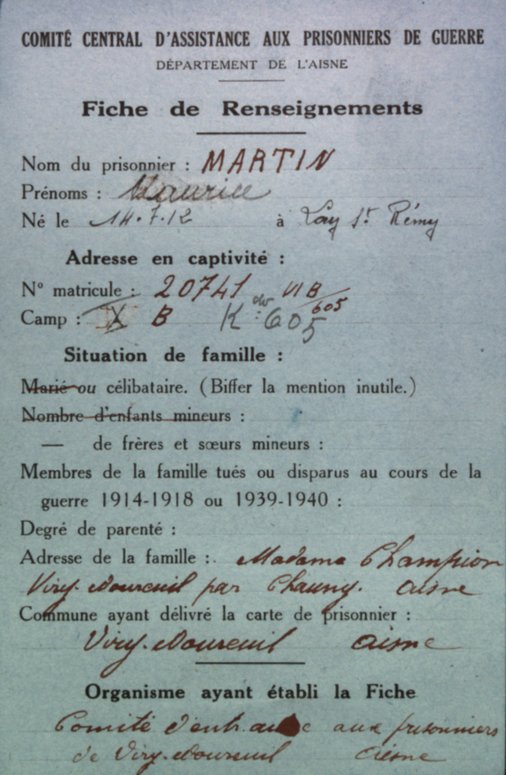 COMITÉ CENTRAL D'ASSISTANCE AUX PRISONNIERS DE GUERRE
DÉPARTEMENT DE L'AISNE
Fiche de Renseignements
Nom du prisonnier : MARTIN
Prénoms : Maurice
Né le 14.7.12 à Lay St Rémy
Adresse en captivité :
N° matricule : 20741 VI B
Camp : X B K dw : 605 605
Situation de famille :
Marié ou célibataire. (Biffer la mention inutile.)
Nombre d'enfants mineurs :
— de frères et sœurs mineurs :
Membres de la famille tués ou disparus au cours de la
guerre 1914-1918 ou 1939-1940 :
Degré de parenté :
Adresse de la famille : Madame Champion
Viry-Noureuil par Chauny. Aisne
Commune ayant délivré la carte de prisonnier :
Viry-Noureuil Aisne
Organisme ayant établi la Fiche
Comité d'entr'aide aux prisonniers
de Viry-Noureuil Aisne